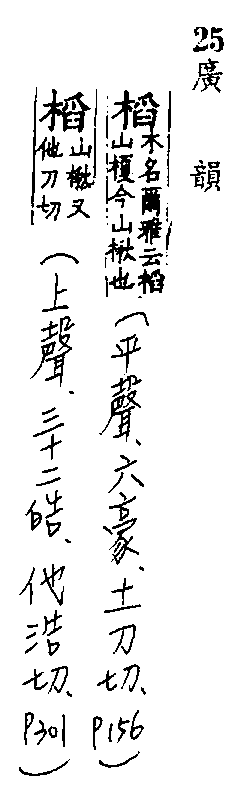 25 廣韻
槄 木名爾雅云槄山榎今山楸也 (平聲、六豪、土刀切、P156)
槄 山楸又他刀切 (上聲、三十二皓、他浩切、P301)